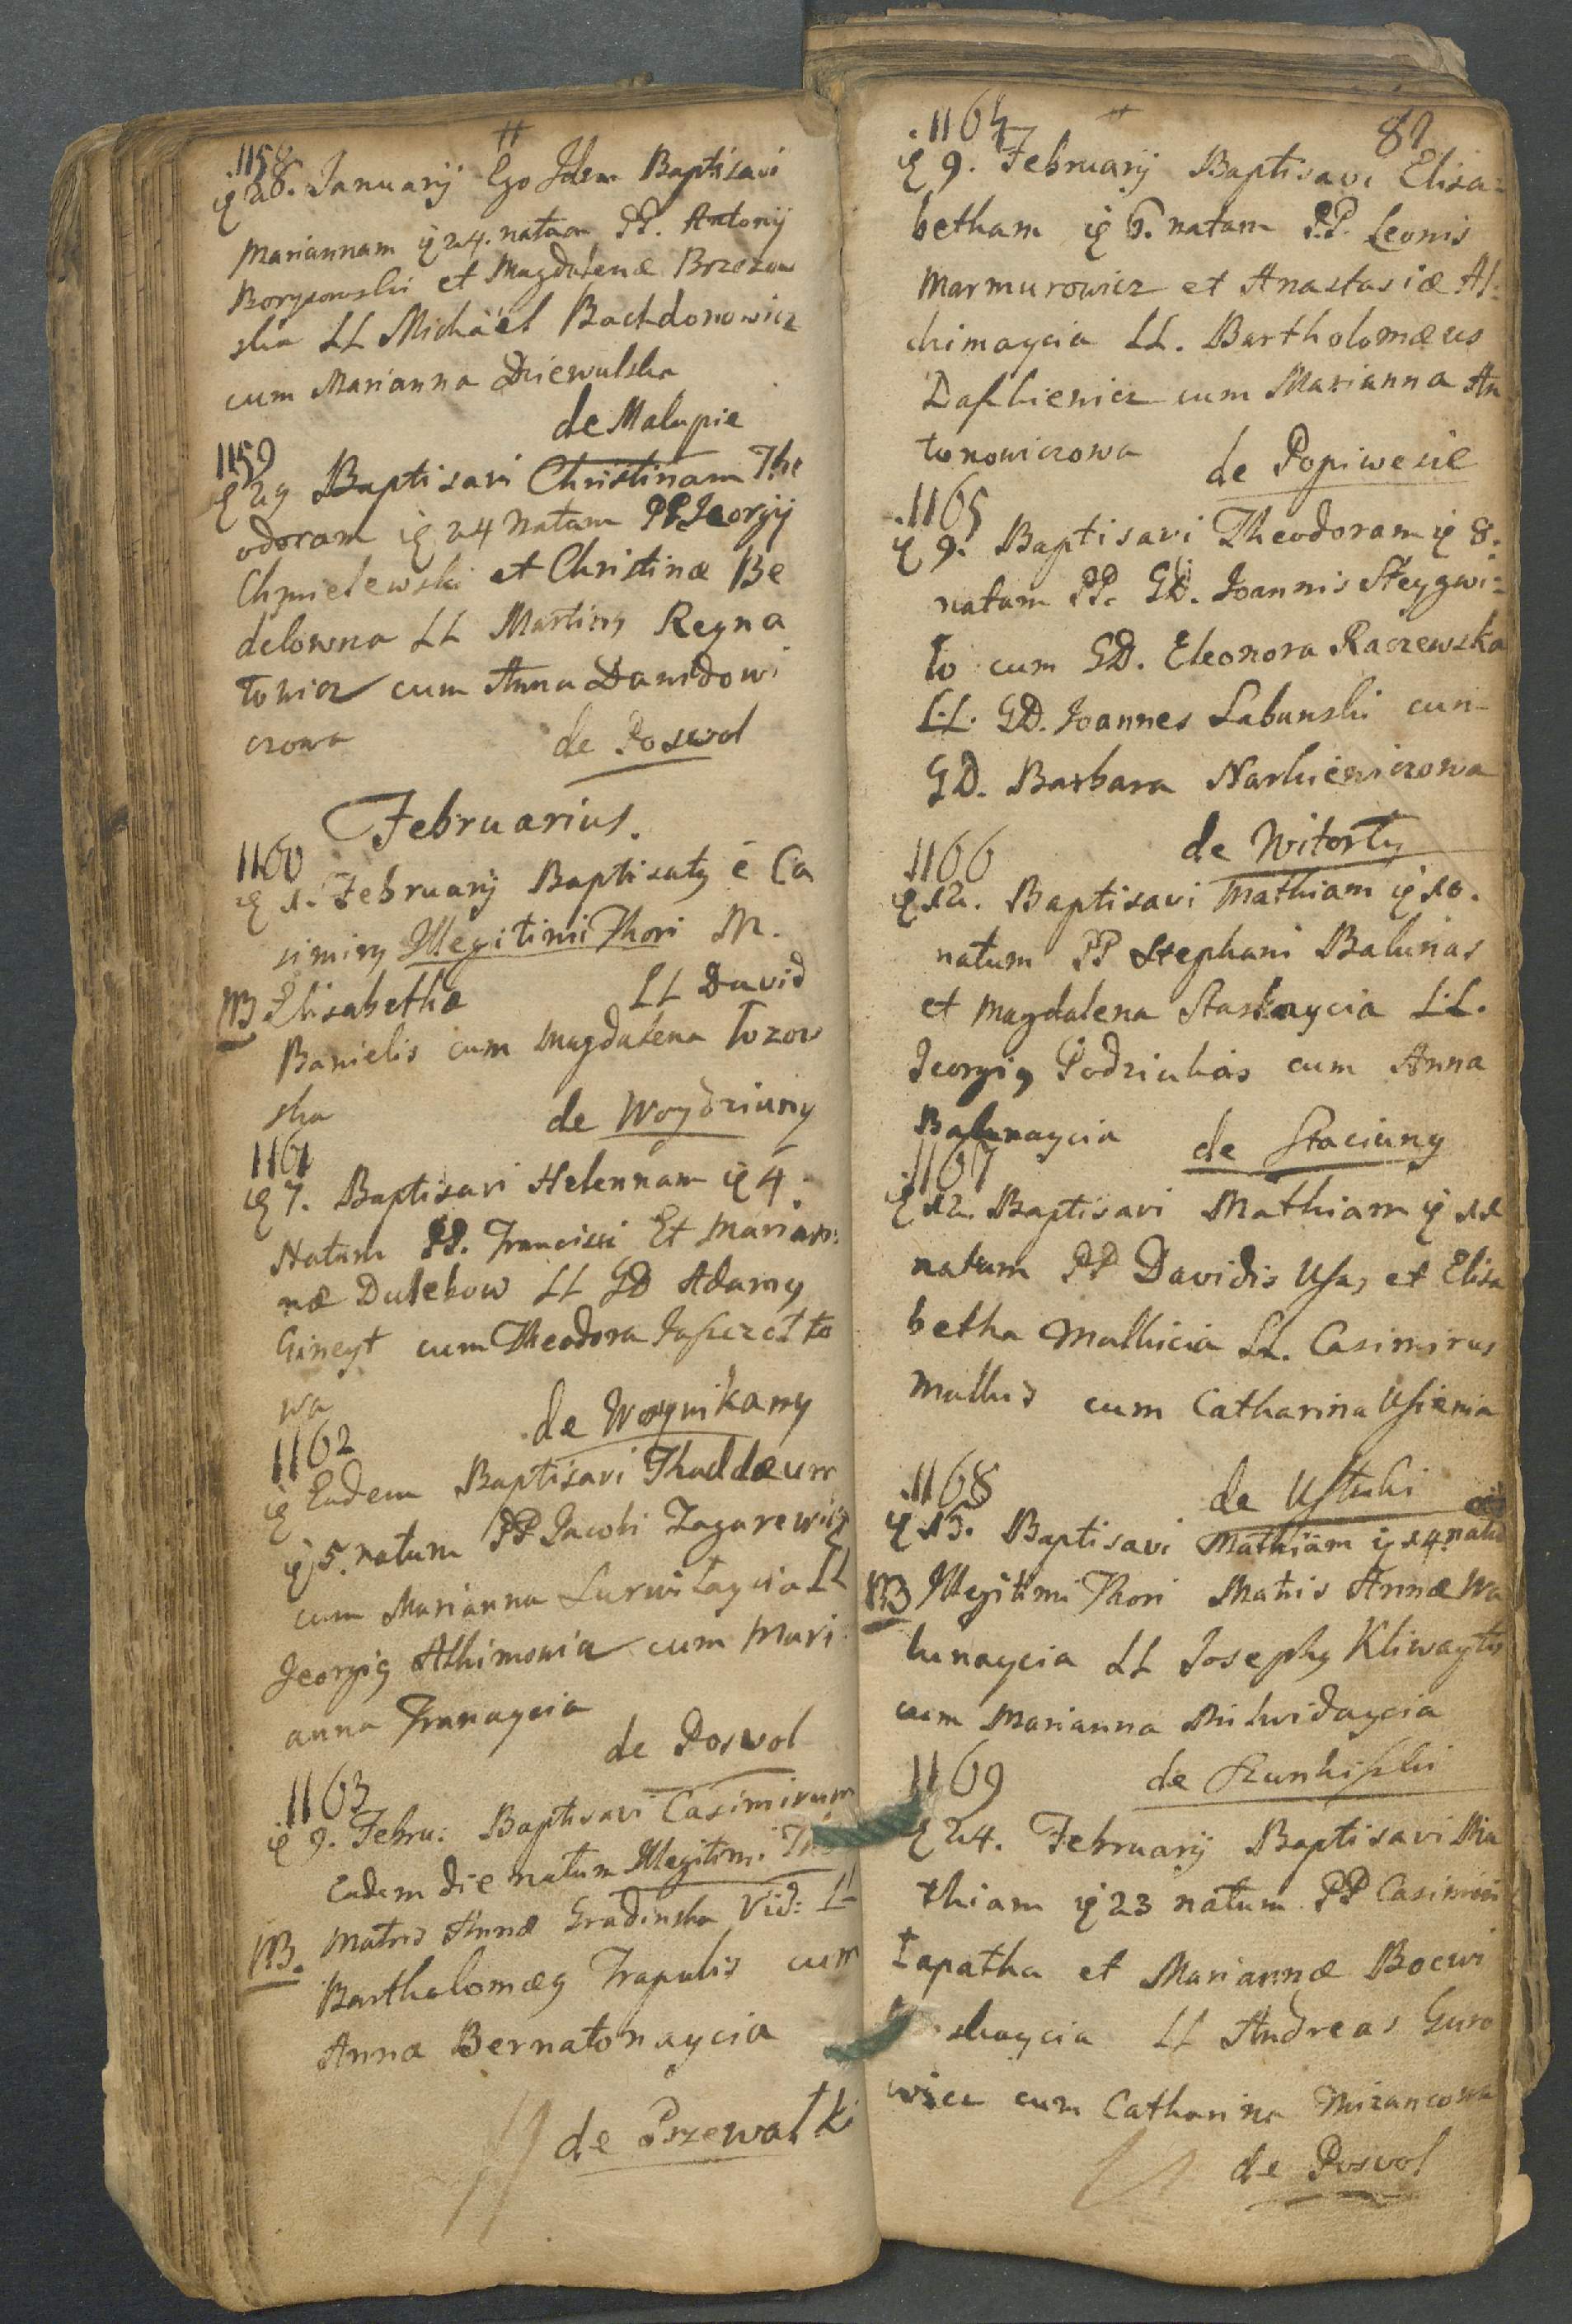 1158
28. Januarij Ego Idem Baptisavi
Mariannam 24. natam PP. Antonij
Borysowski et Magdalenæ Brzozow
ska LL Michaël Bachdonowicz
cum Marianna Dziewulska
de Malupie
1159
29 Baptisavi Christinam The
odoram 24 natam PP. Georgij
Chmielewski et Christinæ Be
delowna LL Martin9 Reyna
towicz cum Anna Dawidowi
czowa
de Poswol
Februarius.
1160
1. Februarij Baptisat9 ē Ca
simir9 Illegitimi Thori M.
NB Elisabethæ LL David
Banielis cum Magdalena Tozow
ska
de Woydziuny
1161
7. Baptisavi Helennam 4.
Natam PP. Francisci Et Marian:
næ Dulebow LL GD Adam9
Gineyt cum Theodora
wa
de Woynikany
1162
Eadem Baptisavi Thaddæum
5. natum PP Jacobi Zagarewicz
cum Marianna Lurwitaycia LL
Georgi9 Akimowicz cum Mari
anna Franaycia
de Poswol
1163
9. Febru: Baptisavi Casimirum
Eadem die natum Illegitimi
NB. Matris Annæ Gradinska Vid: LL
Bartholomæ9 Trapulis cum
Anna Bernatonaycia
de Przewalki
1164
81
9. Februarij Baptisavi Elisa=
betham 6. natam P.P. Leonis
Marmurowicz et Anastasiæ Al=
chimaycia LL. Bartholomæus
Daszkiewicz cum Marianna An
tonowiczowa
de Popiwesie
.1165
9. Baptisavi Theodoram 8.
natam PP. GD. Joannis Steygwi=
ło cum GD. Eleonora Raczewska
L.L. GD. Joannes Labunski cum
GD. Barbara Narkiewiczowa
de Witorty
1166
12. Baptisavi Mathiam 10.
natum PP Stephani Balunas
et Magdalena Staskaycia L.L.
Georgi9 Podziukas cum Anna
Balunaycia
de Staciuny
.1167
12. Baptisavi Mathiam 11
natum PP Davidis Usas et Elisa
betha Malkicia LL. Casimirus
Malkus cum Catharina Usienia
.1168
de Ustuki
15. Baptisavi Mathiam 14. natũ
NB Illegitimi Thori Matris Annæ Wa
lunaycia LL Joseph9 Kliwaytis
cum Marianna Milwidaycia
1169
24. Februarij Baptisavi Ma
thiam 23 natum PP Casimiri
Łapatka et Mariannæ Bocwi
skaycia LL Andreas Guro
wicz cum Catharina Mizancowa
de Poswol